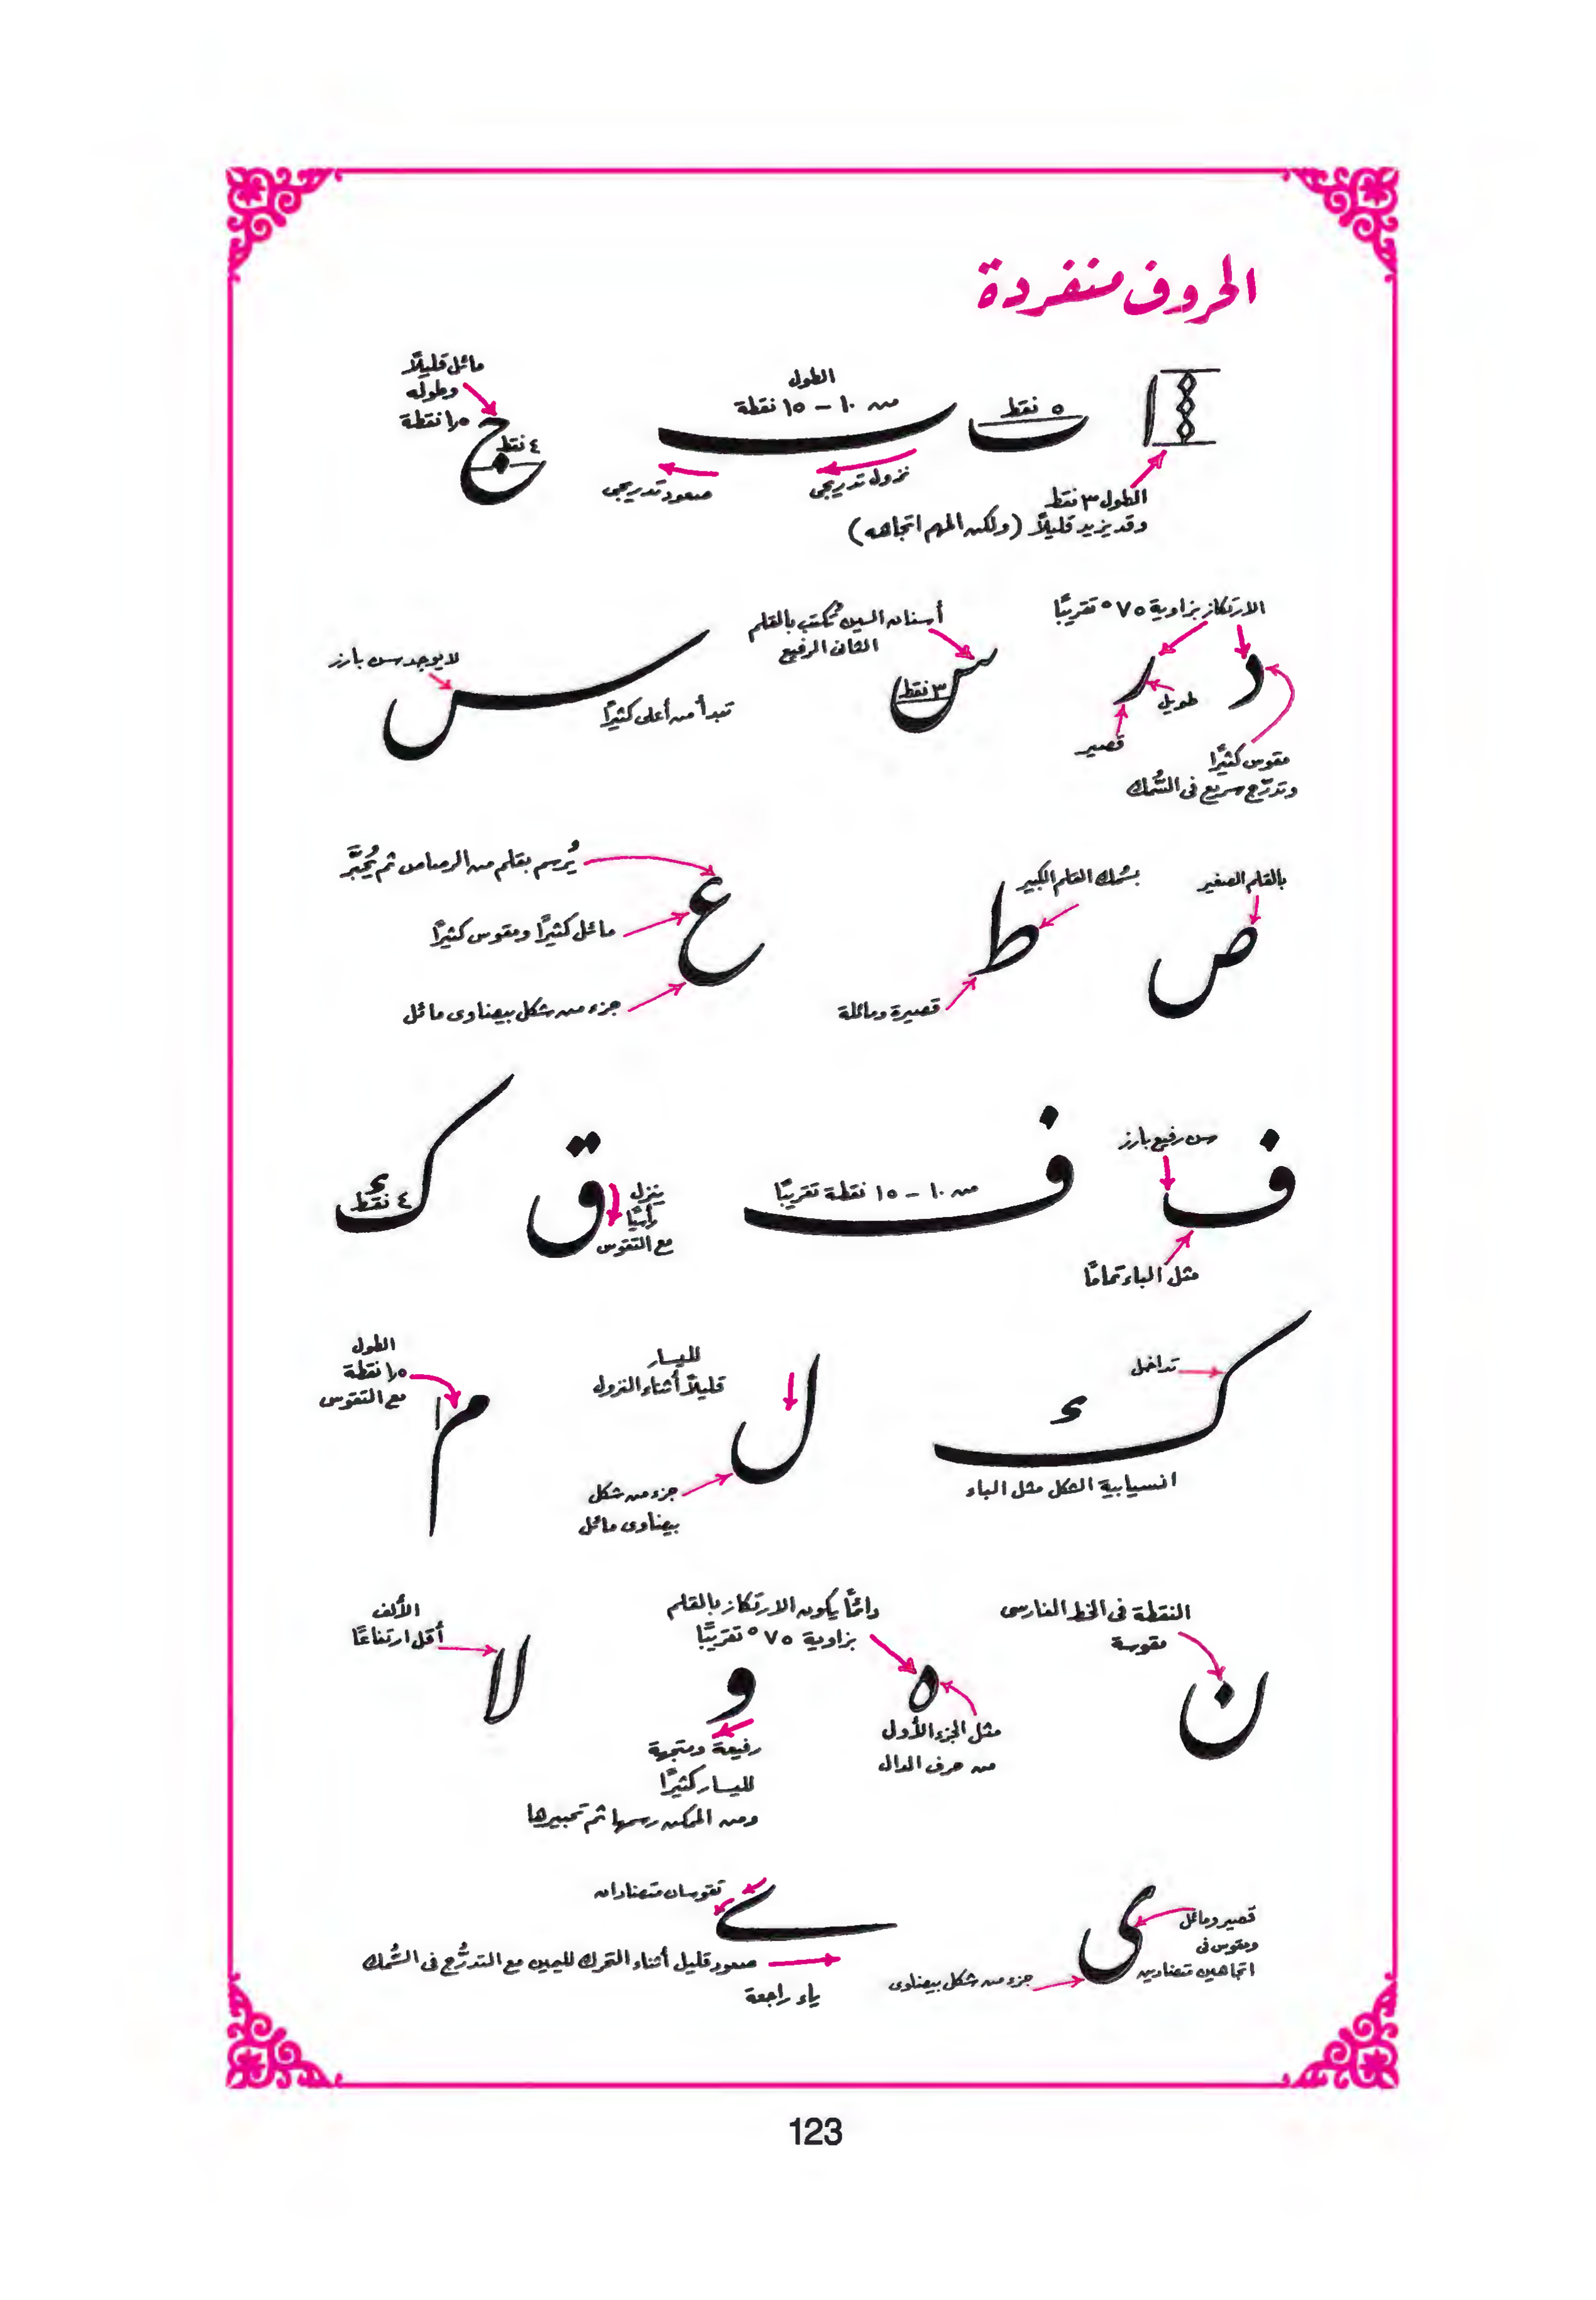 الحروف منفردة
ا
الطول ٣ نقط
وقد يزيد قليلاً (ولكن المهم اتجاهه)
٥ نقط
الطول
من ١٠ – ١٥ نقطة
نزول تدريجى
صعود تدريجى
مائل قليلاً
وطوله
١٫٥ نقطة
ج
٤ نقط
الارتكاز بزاوية ٧٥° تقريبًا
د
ر
طويل
قصير
مقوس كثيرًا
وتدرّج سريع فى السُّمك
أسنان السين تُكتب بالقلم
الثانى الرفيع
س
٣ نقط
س
لا يوجد سن بارز
تبدأ من أعلى كثيرًا
بالقلم الصغير
ص
بسُمك القلم الكبير
ط
قصيرة ومائلة
يُرسم بقلم من الرصاص ثم يُحبَّر
ع
مائل كثيرًا ومقوس كثيرًا
جزء من شكل بيضاوى مائل
سن رفيع بارز
ف
مثل الباء تمامًا
ف
من ١٠ – ١٥ نقطة تقريبًا
ق
ينزل
رأسيًا
مع التقوس
ك
٤ نقط
تداخل
ك
انسيابية الشكل مثل الباء
لليسار
قليلاً أثناء النزول
ل
جزء من شكل
بيضاوى مائل
الطول
١٫٥ نقطة
مع التقوس
م
النقطة فى الخط الفارسى
مقوسة
ن
دائمًا يكون الارتكاز بالقلم
بزاوية ٧٥° تقريبًا
ه
مثل الجزء الأول
من حرف الدال
و
رفيعة ومتجهة
لليسار كثيرًا
ومن الممكن رسمها ثم تحبيرها
الألف
أقل ارتفاعًا
لا
ى
قصير ومائل
ومقوس فى
اتجاهين متضادين
جزء من شكل بيضاوى
تقوسان متضادان
ے
صعود قليل أثناء التحرك لليمين مع التدرُّج فى السُّمك
ياء راجعة
123